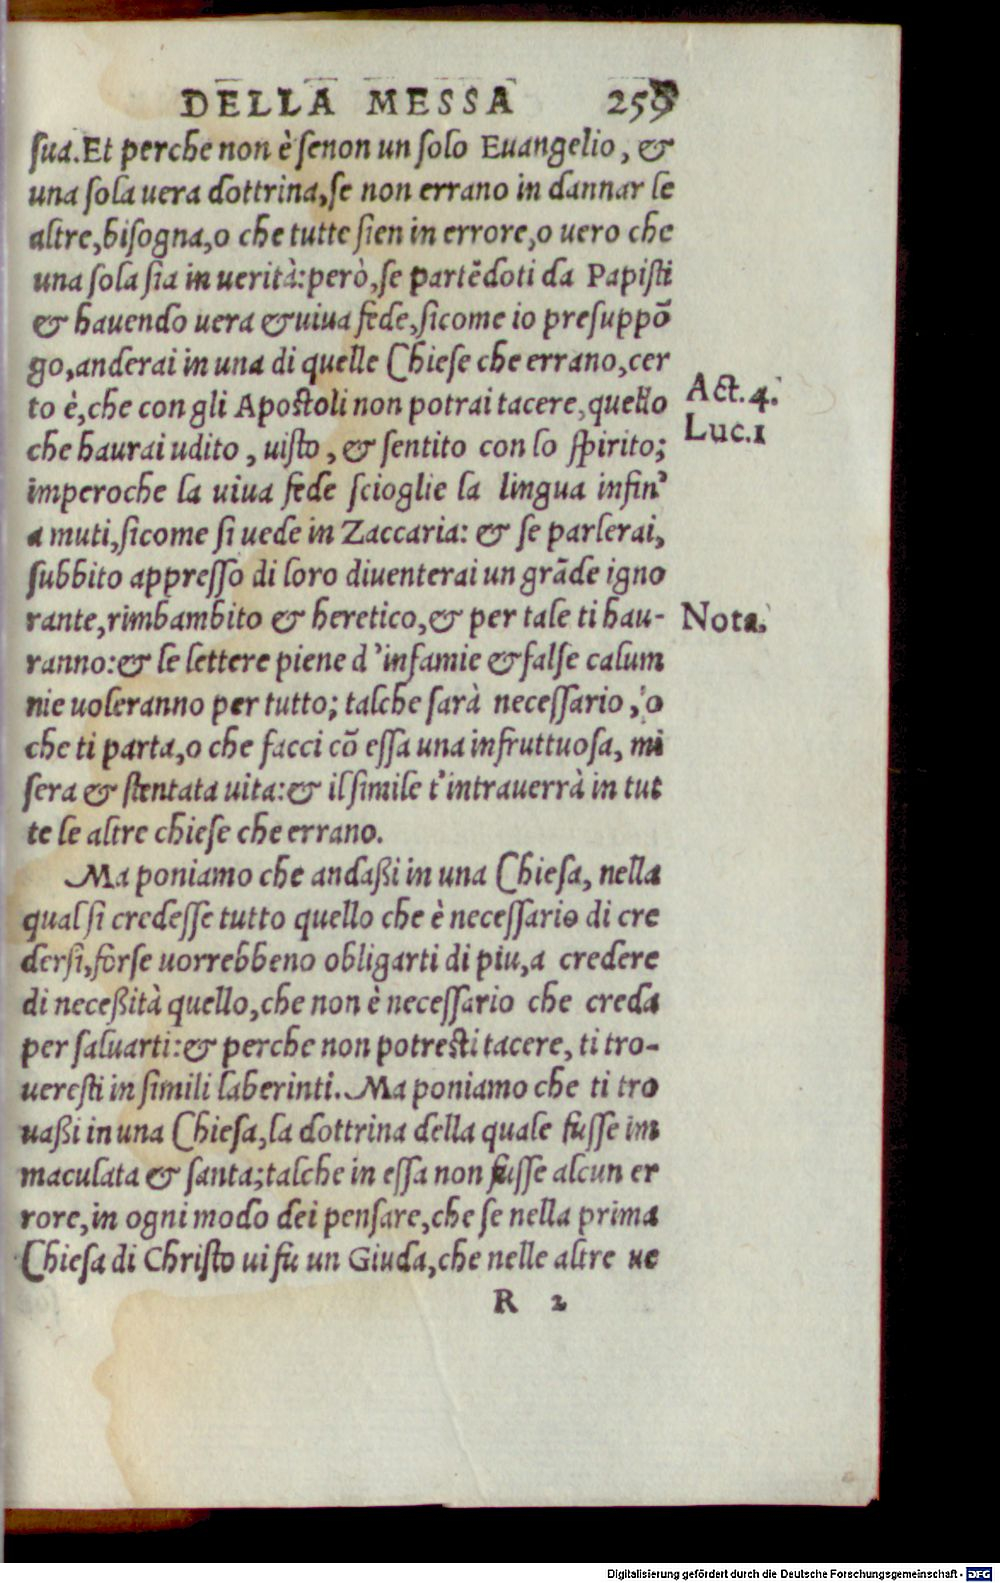 DELLA MESSA 259
sua. Et perche non è senon un solo Euangelio, &
una sola uera dottrina, se non errano in dannar le
altre, bisogna, o che tutte sien in errore, o uero che
una sola sia in uerità: però, se partēdoti da Papisti
& hauendo uera & uiua fede, sicome io presuppō
go, anderai in una di quelle Chiese che errano, cer
to è, che con gli Apostoli non potrai tacere, quello
che haurai udito, uisto, & sentito con lo spirito;
imperoche la uiua fede scioglie la lingua infin'
a muti, sicome si uede in Zaccaria: & se parlerai,
subbito appresso di loro diuenterai un grāde igno
rante, rimbambito & heretico, & per tale ti hau-
ranno: & le lettere piene d'infamie & false calum
nie uoleranno per tutto; talche sarà necessario, o
che ti parta, o che facci cō essa una infruttuosa, mi
sera & stentata uita: & il simile t'intrauerrà in tut
te le altre chiese che errano.
Ma poniamo che andaßi in una Chiesa, nella
qual si credesse tutto quello che è necessario di cre
dersi, forse uorrebbeno obligarti di piu, a credere
di neceßità quello, che non è necessario che creda
per saluarti: & perche non potresti tacere, ti tro-
ueresti in simili laberinti. Ma poniamo che ti tro
uaßi in una Chiesa, la dottrina della quale fusse im
maculata & santa; talche in essa non fusse alcun er
rore, in ogni modo dei pensare, che se nella prima
Chiesa di Christo ui fu un Giuda, che nelle altre ue
R 2
Act. 4.
Luc. 1
Nota.
Digitalisierung gefördert durch die Deutsche Forschungsgemeinschaft - DFG